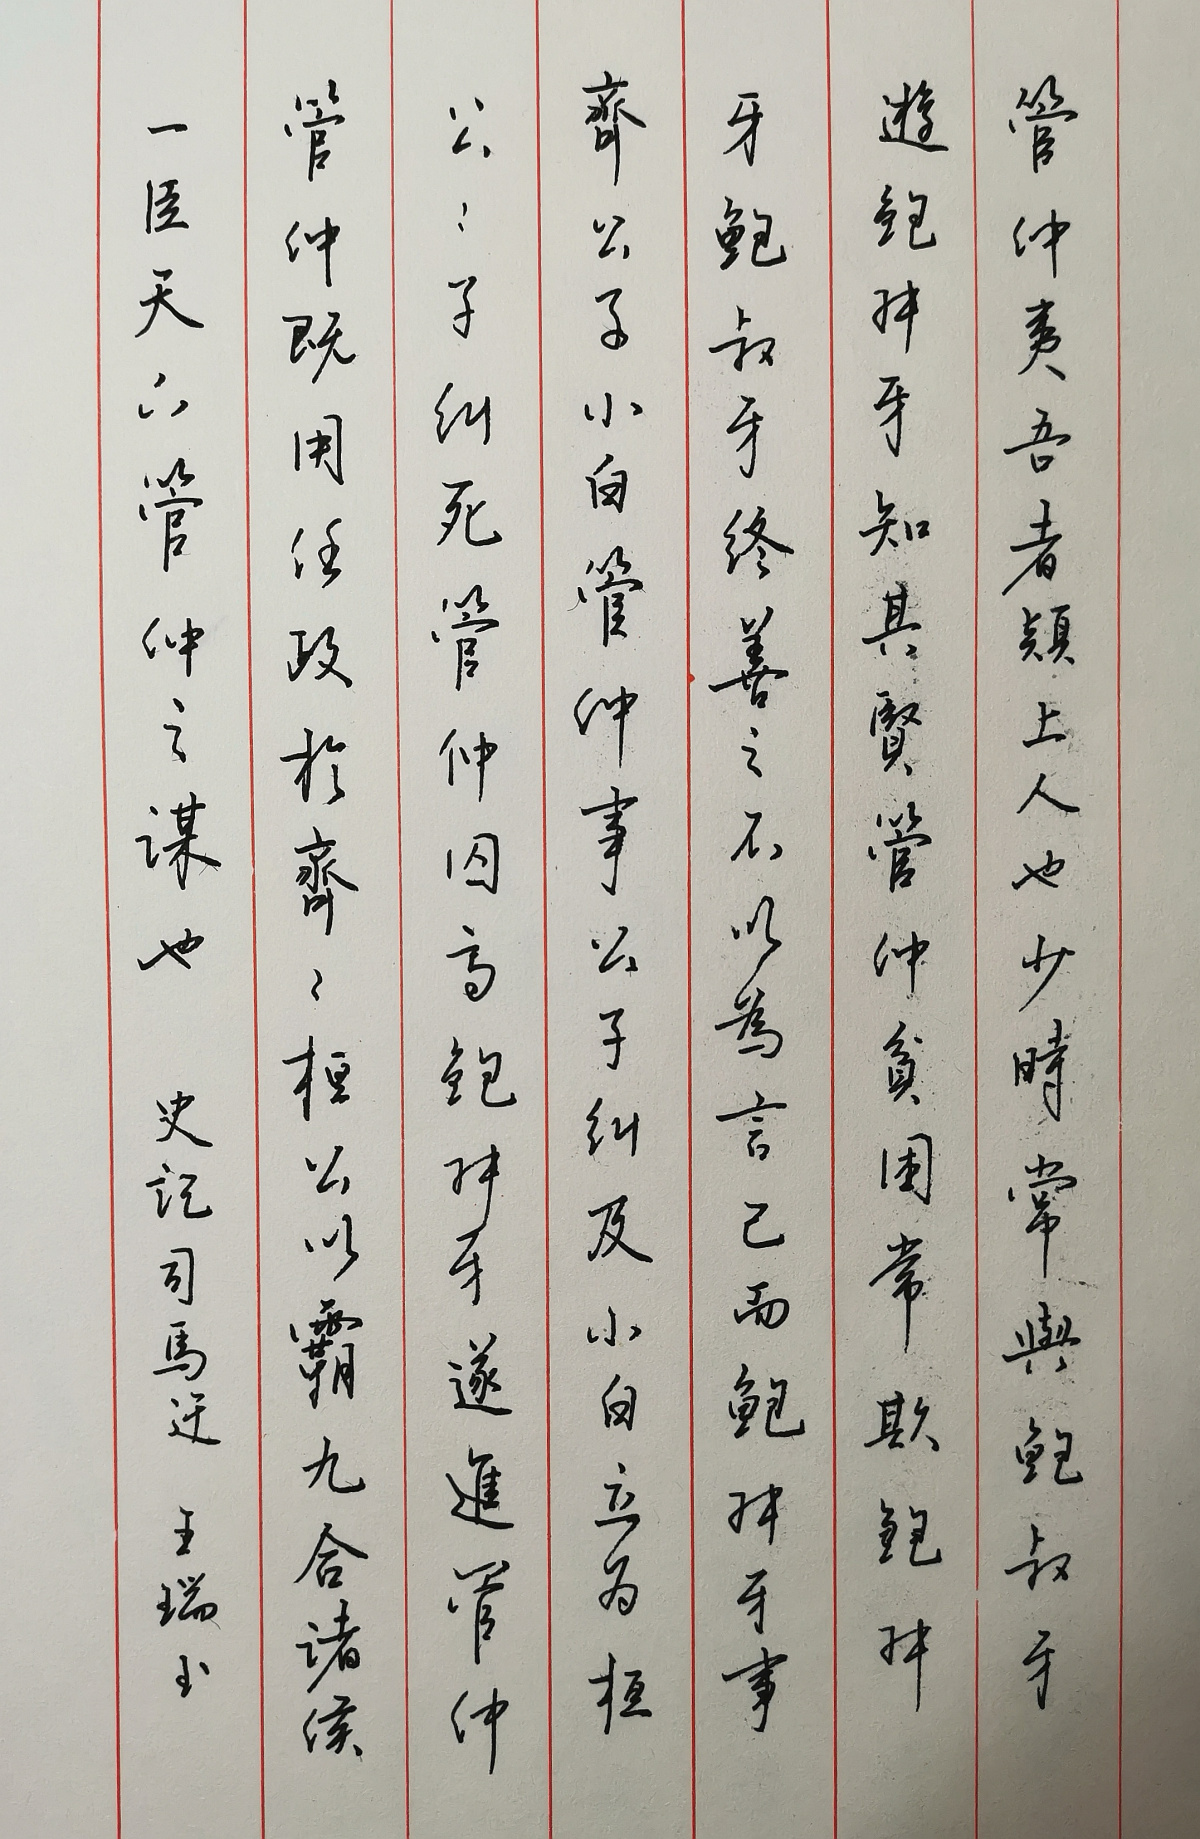 管仲夷吾者潁上人也少時常與鮑叔牙
遊鮑叔牙知其賢管仲貧困常欺鮑叔
牙鮑叔牙終善之不以為言已而鮑叔牙事
齊公子小白管仲事公子糾及小白立为桓
公〻子糾死管仲囚焉鮑叔牙遂進管仲
管仲既用任政於齊〻桓公以霸九合諸侯
一匡天下管仲之謀也 史記司馬迁 王瑞书